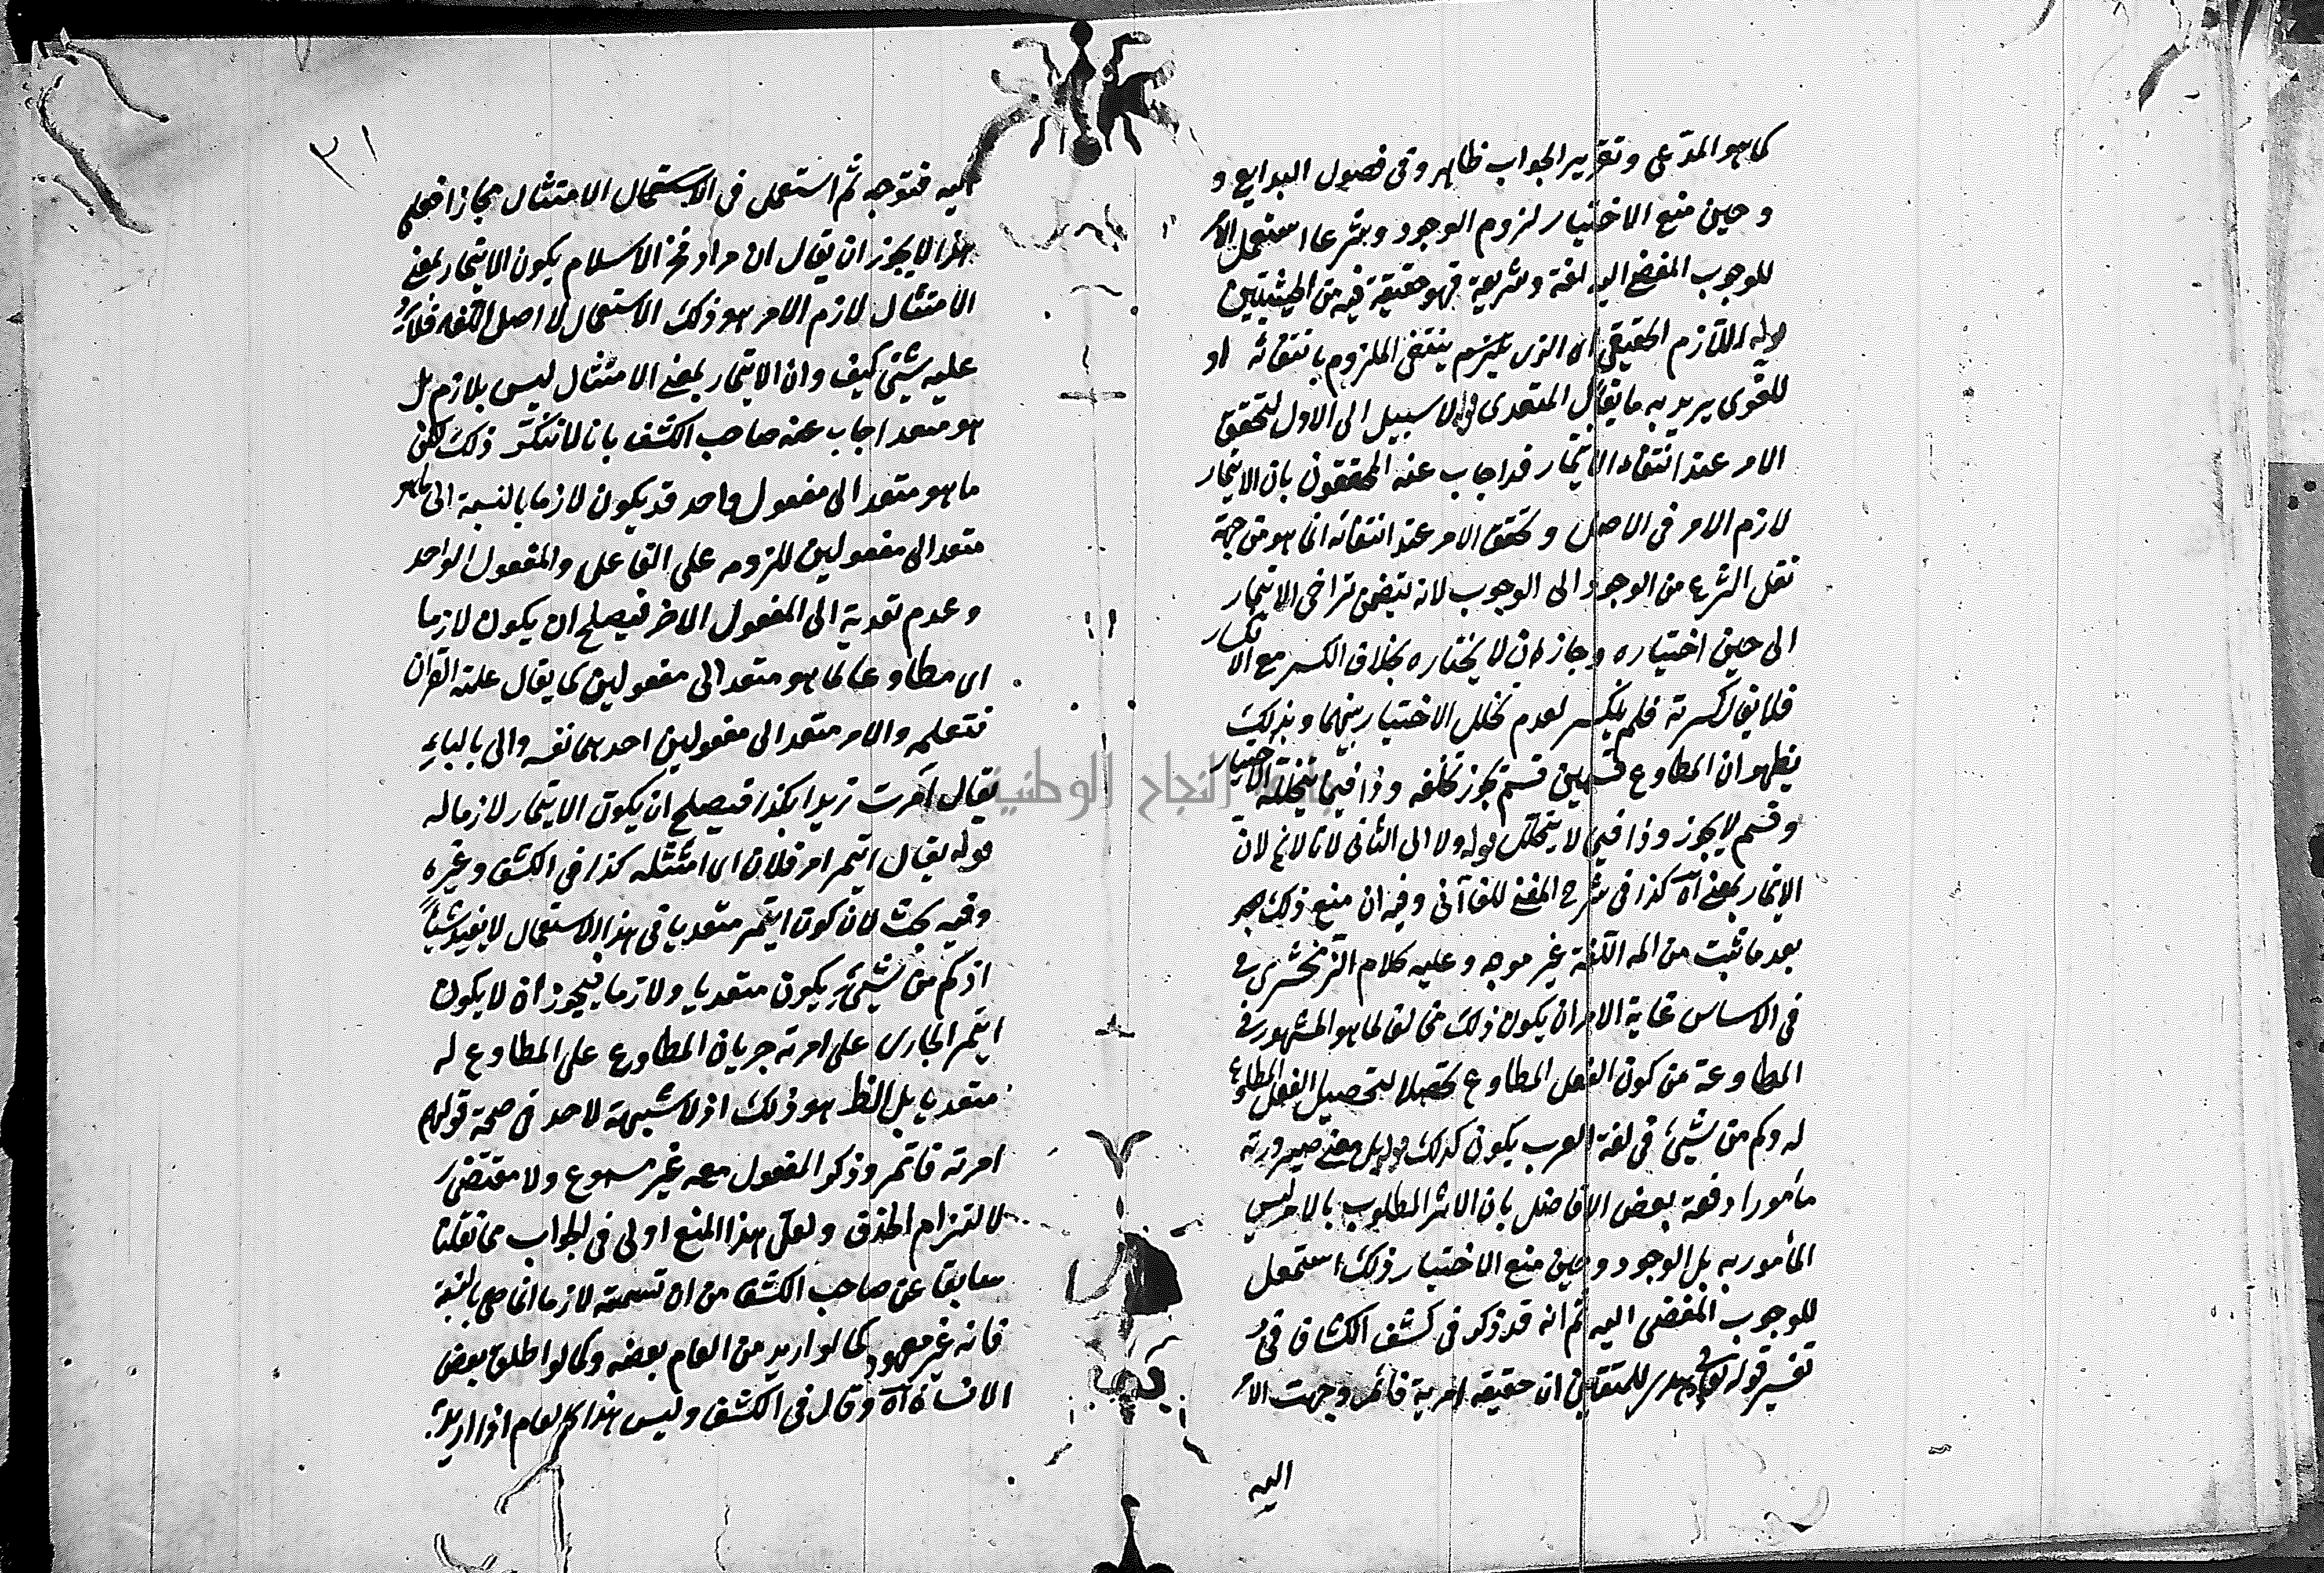 كما هو المدعى وتقرير الجواب ظاهر وفى فصول البدايع و
وحين منع الاختيار لزوم الوجود وشرعا استعمل الأمر
للوجوب المفضى اليه لغة وشريعة فهو حقيقة فيه من الحيثيتين
قوله اللازم الحقيقى اه الذى يلزم ينتفى الملزوم بانتفائه او
للغوى يريد به ما يقابل المتعدى قوله لا سبيل الى الاول لتحقق
الامر عند انتفاء الايتمار قد اجاب عنه المحققون بان الايتمار
لازم الامر فى الاصل وتحقق الامر عند انتفائه انما هو من جهة
نقل الشرع من الوجود الى الوجوب لانه يتضمن تراخى الايتمار
الى حين اختياره وجاز ان لا يختاره بخلاف الكسر مع الانكسار
فلا يقال كسرته فلم ينكسر لعدم تخلل الاختيار بينهما وبذلك
يظهر ان المطاوع قسمين قسم يجوز تخلفه وذا فيما يتخلله الاختيار
وقسم لا يجوز وذا فيما لا يتخلل قوله ولا الى الثانى لانا لانم لان
الايتمار بمعنى اه كذا فى شرح المغنى للقاآنى وفيه ان منع ذلك
بعد ما ثبت من ائمة اللغة غير موجه وعليه كلام الزمخشرى فى
فى الاساس غاية الامر ان يكون ذلك مخالفا لما هو المشهور فى
المطاوعة من كون الفعل المطاوع محصلا لتحصيل الفعل المطاوع
له وكم من شيئ فى لغة العرب يكون كذلك قوله بل معنى صيرورته
مأمورا دفعة بعض الافاضل بان الاثر المطلوب بالامر ليس
المأمور به بل الوجود وحين منع الاختيار ذلك استعمل
للوجوب المفضى اليه ثم انه قد ذكر فى كشف الكشاف فى
تفسير قوله تعالى هدى للمتقين ان حقيقة امرته فائتمر وجهت الأمر
اليه
٣١
اليه فتوجه ثم استعمل فى الاستعمال الامتثال مجازا فعلى
هذا لا يجوز ان يقال ان مراد فخر الاسلام يكون الايتمار بمعنى
الامتثال لازم الامر هو ذلك الاستعمال لا اصل اللغة فلا يرد
عليه شيئ كيف وان الايتمار بمعنى الامتثال ليس بلازم بل
هو متعد اجاب عنه صاحب الكشف بانا لا ننكر ذلك لكن
ما هو متعد الى مفعول واحد قد يكون لازما بالنسبة الى ما هو
متعد الى مفعولين للزومه على الفاعل والمفعول الواحد
وعدم تعديه الى المفعول الاخر فيصلح ان يكون لازما
اى مطاوعا لما هو متعد الى مفعولين كما يقال علمته القرآن
فتعلمه والامر متعد الى مفعولين احدهما نفسه والى بالباء
يقال امرت زيدا بكذا فيصلح ان يكون الايتمار لازما له
قوله يقال ايتمر امر فلان اى امتثله كذا فى الكشف وغيره
وفيه بحث لان كون ايتمر متعديا فى هذا الاستعمال لا يفيد شيئا
اذ كم من شيئ يكون متعديا ولازما فيجوز ان لا يكون
ايتمر الجارى على امرته جريان المطاوع على المطاوع له
متعديا بل الظ هو ذلك اذ لا شبهة لاحد فى صحة قولهم
امرته فائتمر وذكر المفعول معه غير مسموع ولا مقتضى
لالتزام الحذف ولعل هذا المنع اولى فى الجواب مما نقلنا
سابقا عن صاحب الكشف من ان تسمية لازما انما هى بالنسبة
فانه غير معهود كما لو اريد من العام بعضه وكما لو اطلق بعض
الانسان اه وقال فى الكشف وليس هذا كالعام اذا اريد به
جامعة النجاح الوطنية